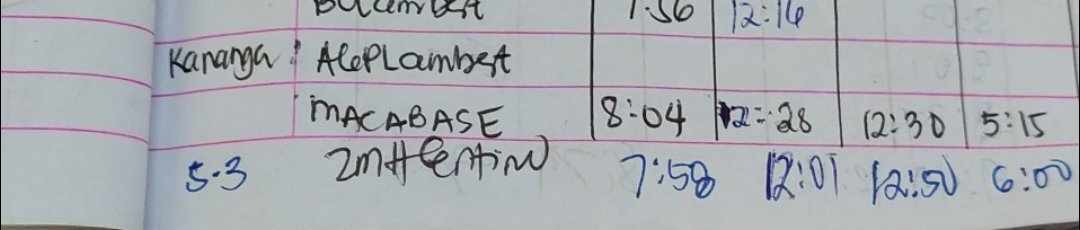 1:56 12:16
Kananga AlePLambest
MACABASE 8:04 12:28 12:30 5:15
5.3 7:58 12:01 12:50 6:00